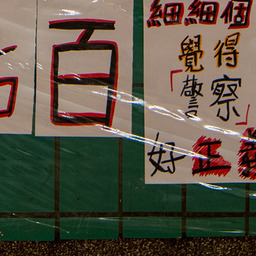 百
細細個
覺得
「警察」
好正義